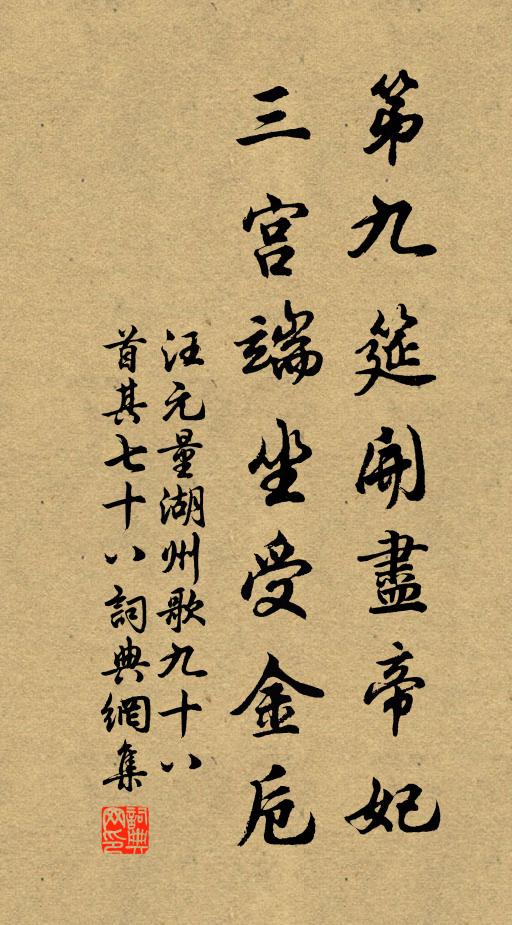 第九筵開盡帝妃
三宫端坐受金卮
汪元量湖州歌九十八
首其七十八詞典網集
詞典網印